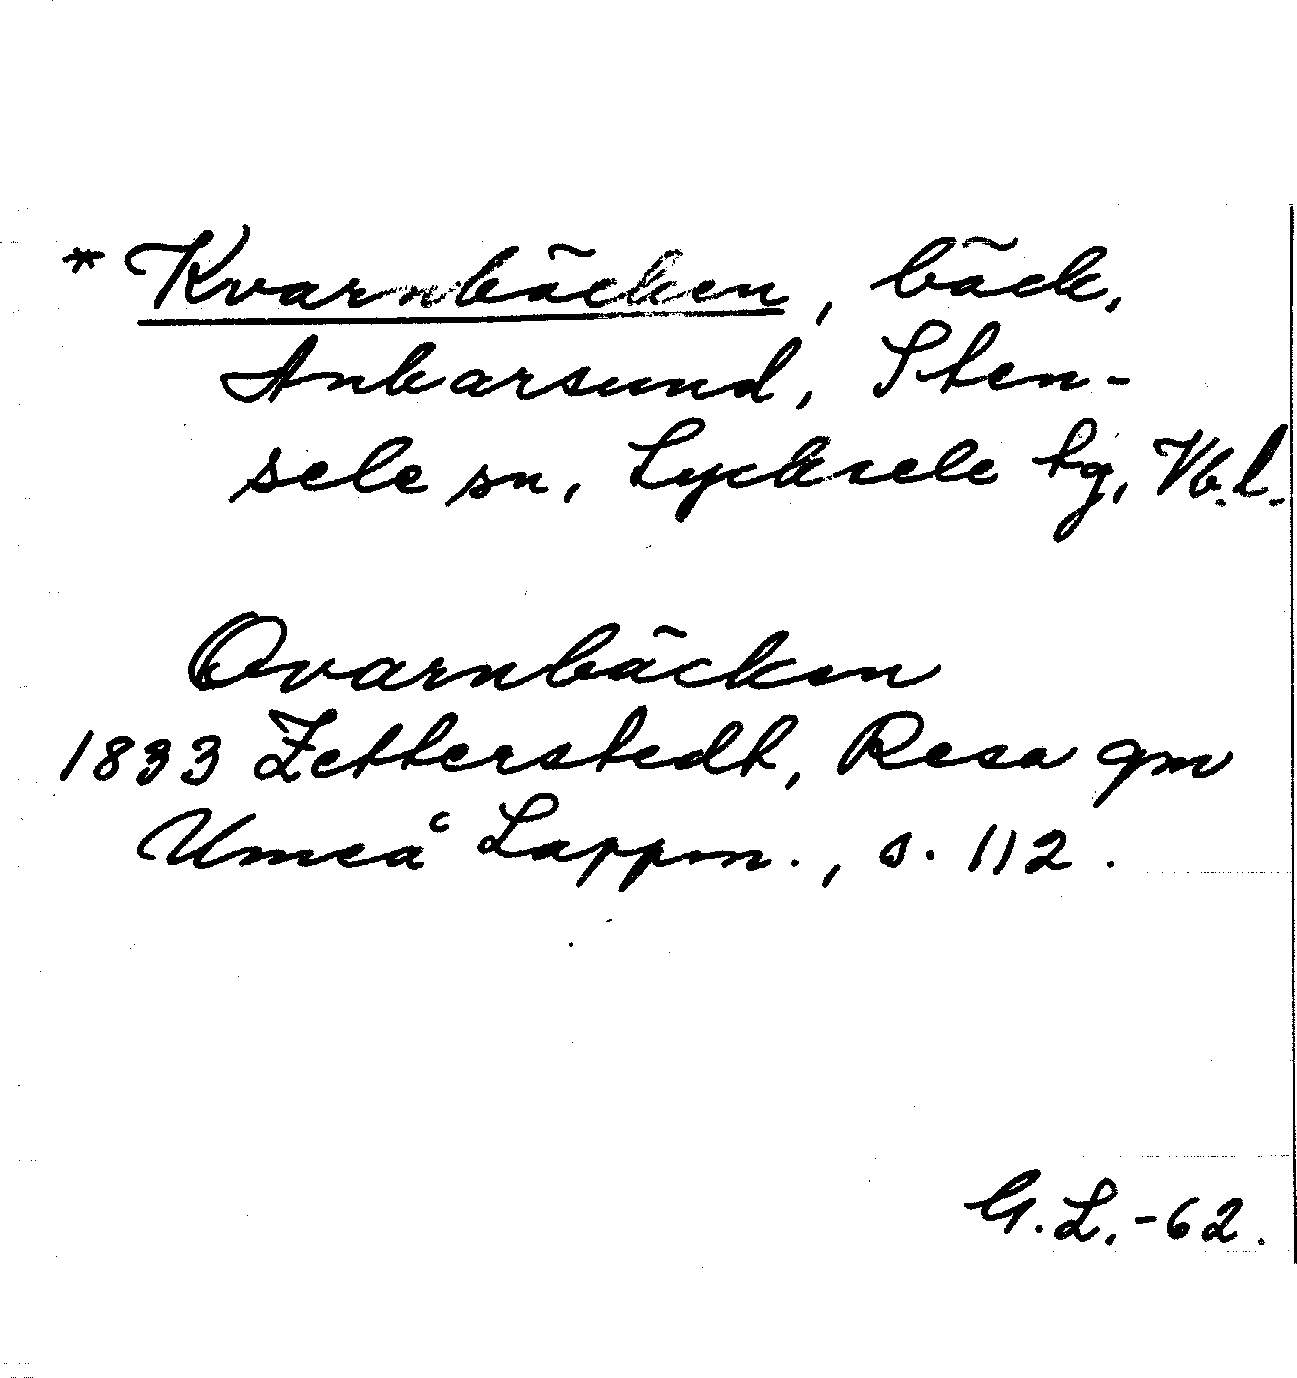 * Kvarnbäcken, bäck,
Ankarsund, Sten-
sele sn, Lycksele lg, Vb.l.
Qvarnbäcken
1833 Zetterstedt, Resa gm
Umeå Lappm., s. 112.
G.L.-62.